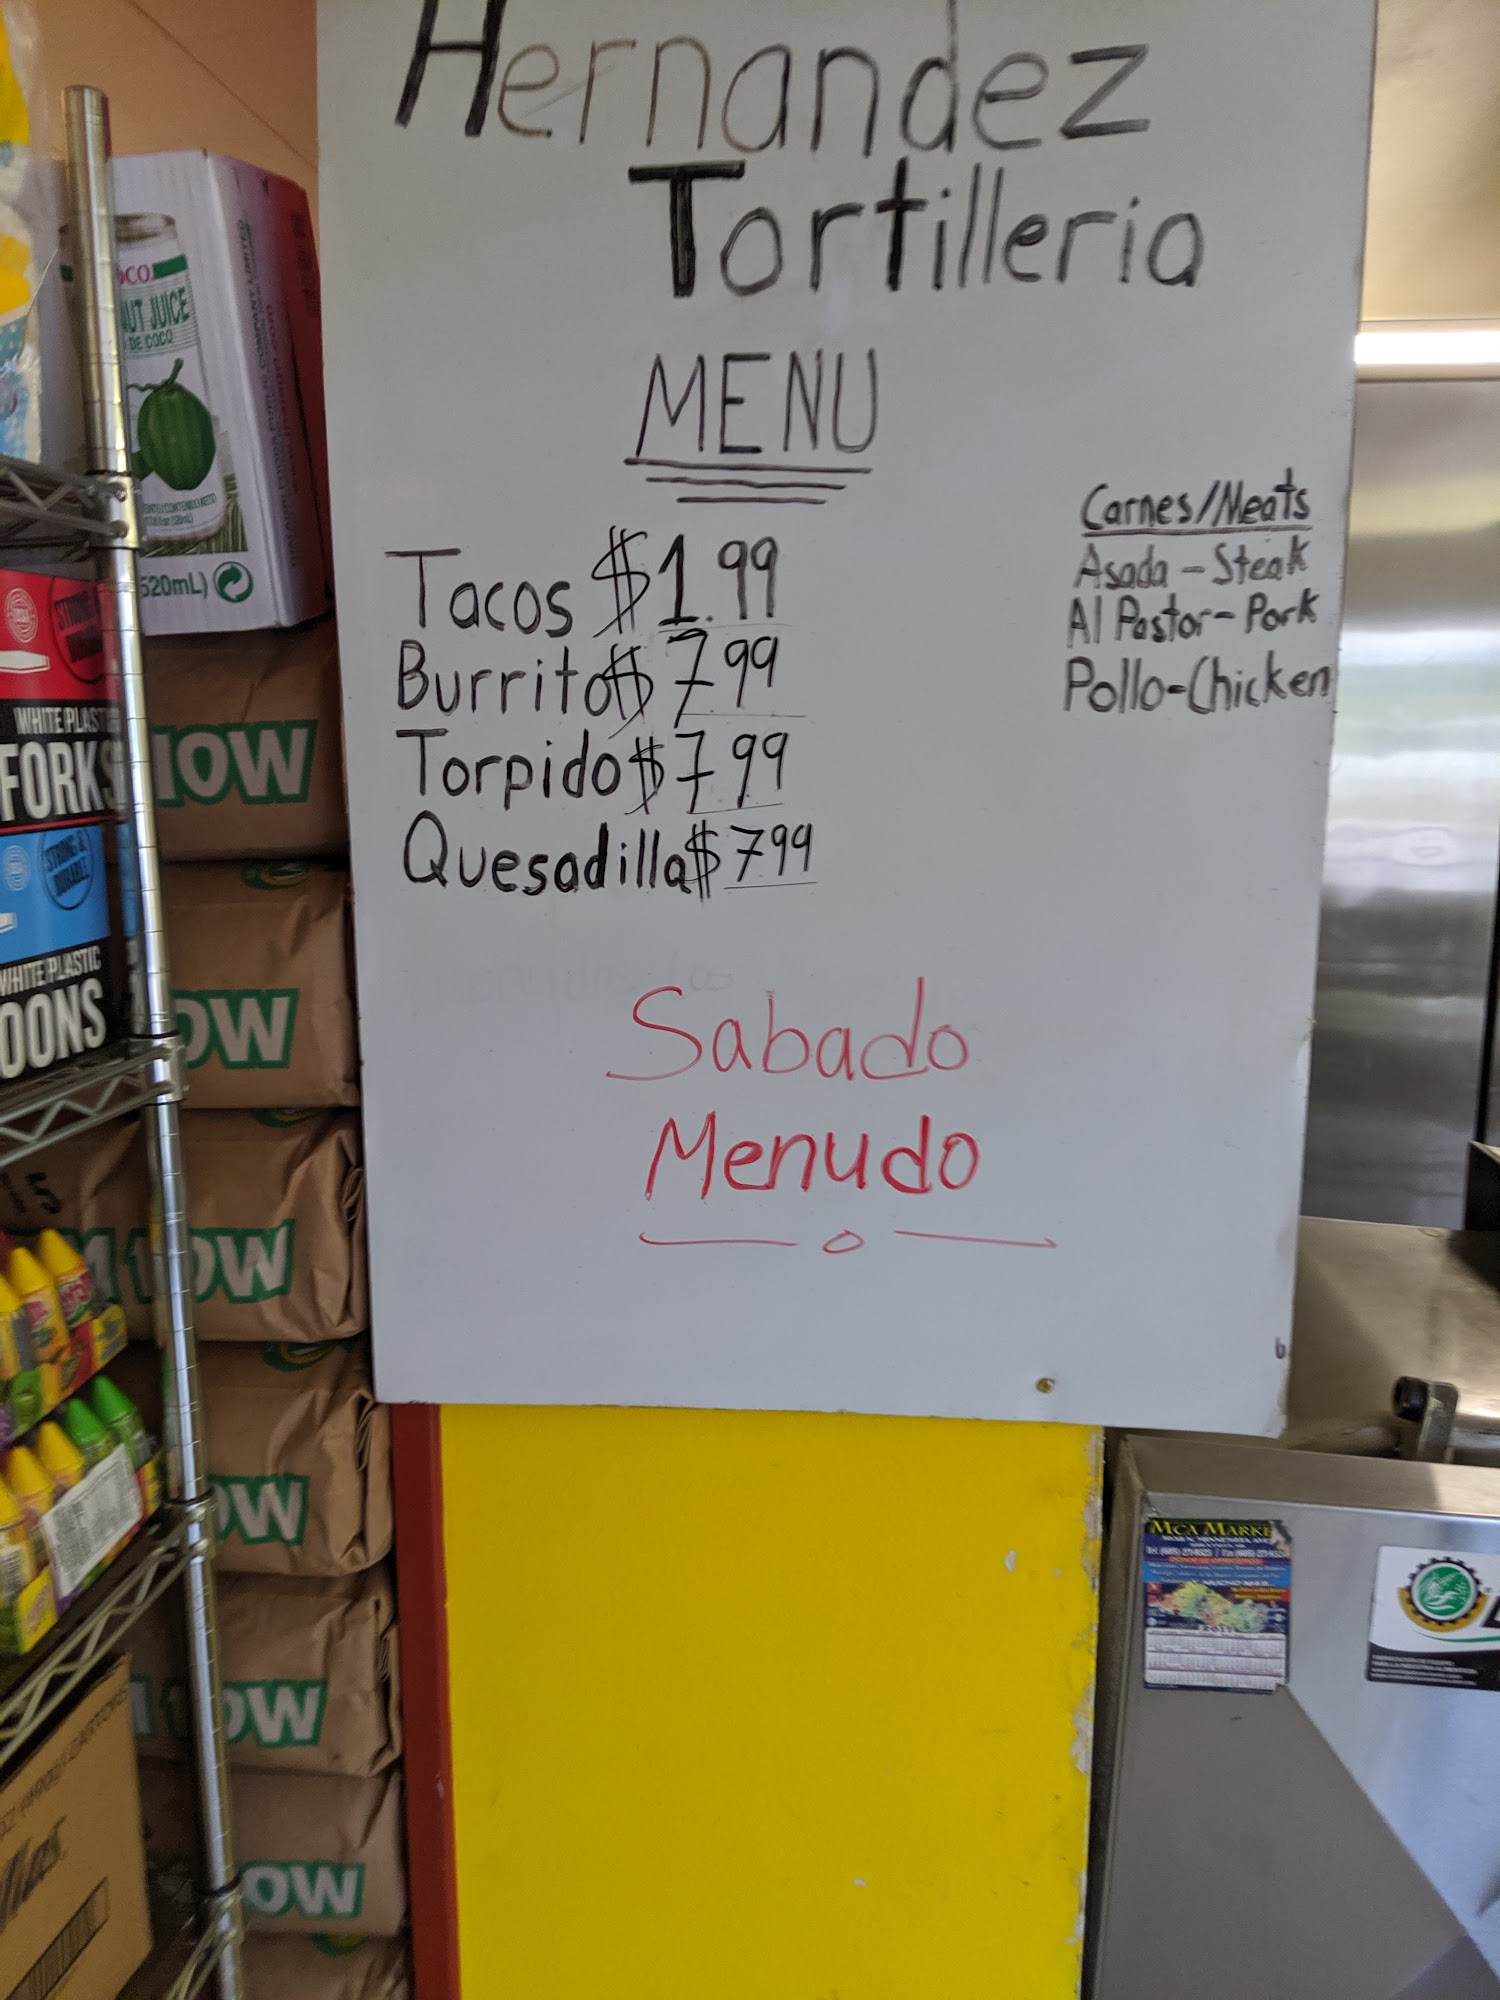 Hernandez
Tortilleria
MENU
Tacos $1.99
Burrito$ 7.99
Torpido $7.99
Quesadilla$ 7.99
Carnes/Meats
Asada - Steak
Al Pastor - Pork
Pollo - Chicken
Sabado
Menudo
OCO
NUT JUICE
DE COCO
520mL)
WHITE PLAST
FORKS
STRONG &
DURABLE
WHITE PLASTIC
OONS
IOW
OW
15
OW
OW
OW
OW
MCA MARKE